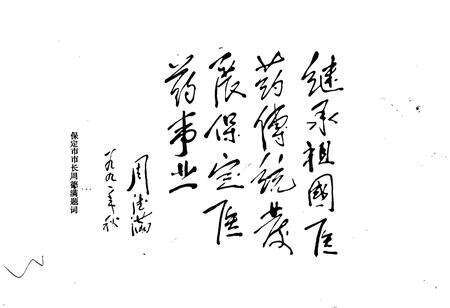 继承祖國医
药傳统发
展保定医
药事业
周德满
一九九二年秋
保定市市长周德满题词